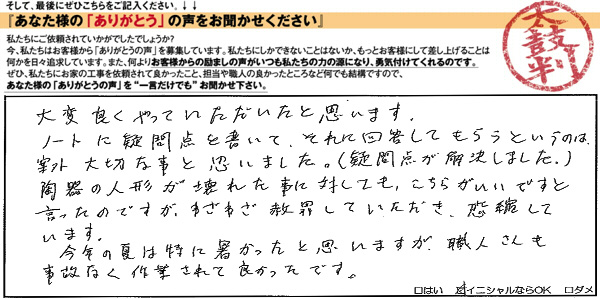 そして、最後にぜひこちらをご記入ください。↓↓↓
『あなた様の「ありがとう」の声をお聞かせください』
私たちにご依頼されていかがでしたでしょうか?
今、私たちはお客様から「ありがとうの声」を募集しています。私たちにしかできないことはないか、もっとお客様にして差し上げることは
何かを日々追求しています。また、何よりお客様からの励ましの声がいつも私たちの力の源になり、勇気付けてくれるのです。
ぜひ、私たちにお家の工事を依頼されて良かったこと、担当や職人の良かったところなど何でも結構ですので、
あなた様の「ありがとうの声」を“一言だけでも”お聞かせ下さい。
太鼓判
大変良くやっていただいたと思います。
ノートに疑問点を書いて、それに回答してもらうというのは、
案外大切な事と思いました。(疑問点が解決しました。)
陶器の人形が壊れた事に対しても、こちらがいいですと
言ったのですが、わざわざ謝罪していただき、恐縮して
います。
今年の夏は特に暑かったと思いますが、職人さんも
事故なく作業されて良かったです。
□はい ☑イニシャルならOK □ダメ